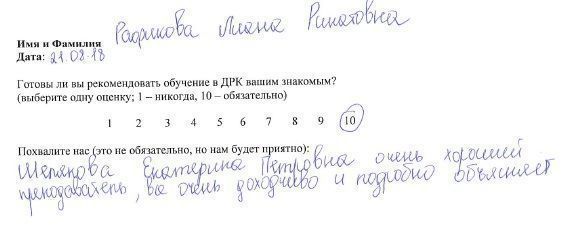 Имя и Фамилия Радикова Лиана Ринатовна
Дата: 21.08.18
Готовы ли вы рекомендовать обучение в ДРК вашим знакомым?
(выберите одну оценку; 1 – никогда, 10 – обязательно)
1 2 3 4 5 6 7 8 9 10
Похвалите нас (это не обязательно, но нам будет приятно):
Екатерина Петровна очень хороший
преподаватель, все очень доходчиво и подробно объясняет